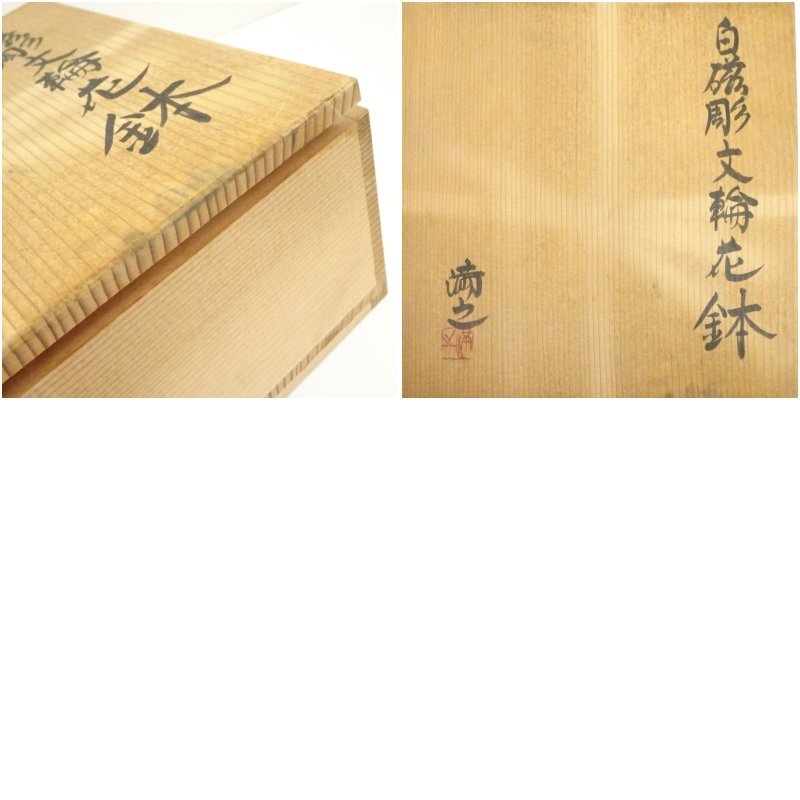 彫文輪花鉢
白磁彫文輪花鉢
満之